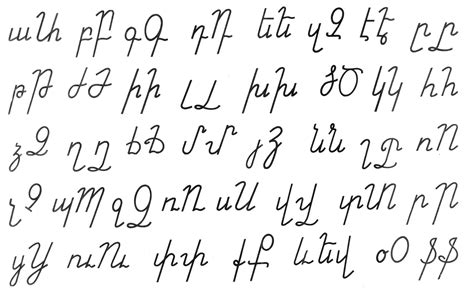 աԱ բԲ գԳ դԴ եԵ զԶ էԷ ըԸ
թԹ ժԺ իԻ լԼ խԽ ծԾ կԿ հՀ
ձՁ ղՂ ճՃ մՄ յՅ նՆ շՇ ոՈ
չՉ պՊ ջՋ ռՌ սՍ վՎ տՏ րՐ
ցՑ ուՈւ փՓ քՔ ևԵվ օՕ ֆՖ